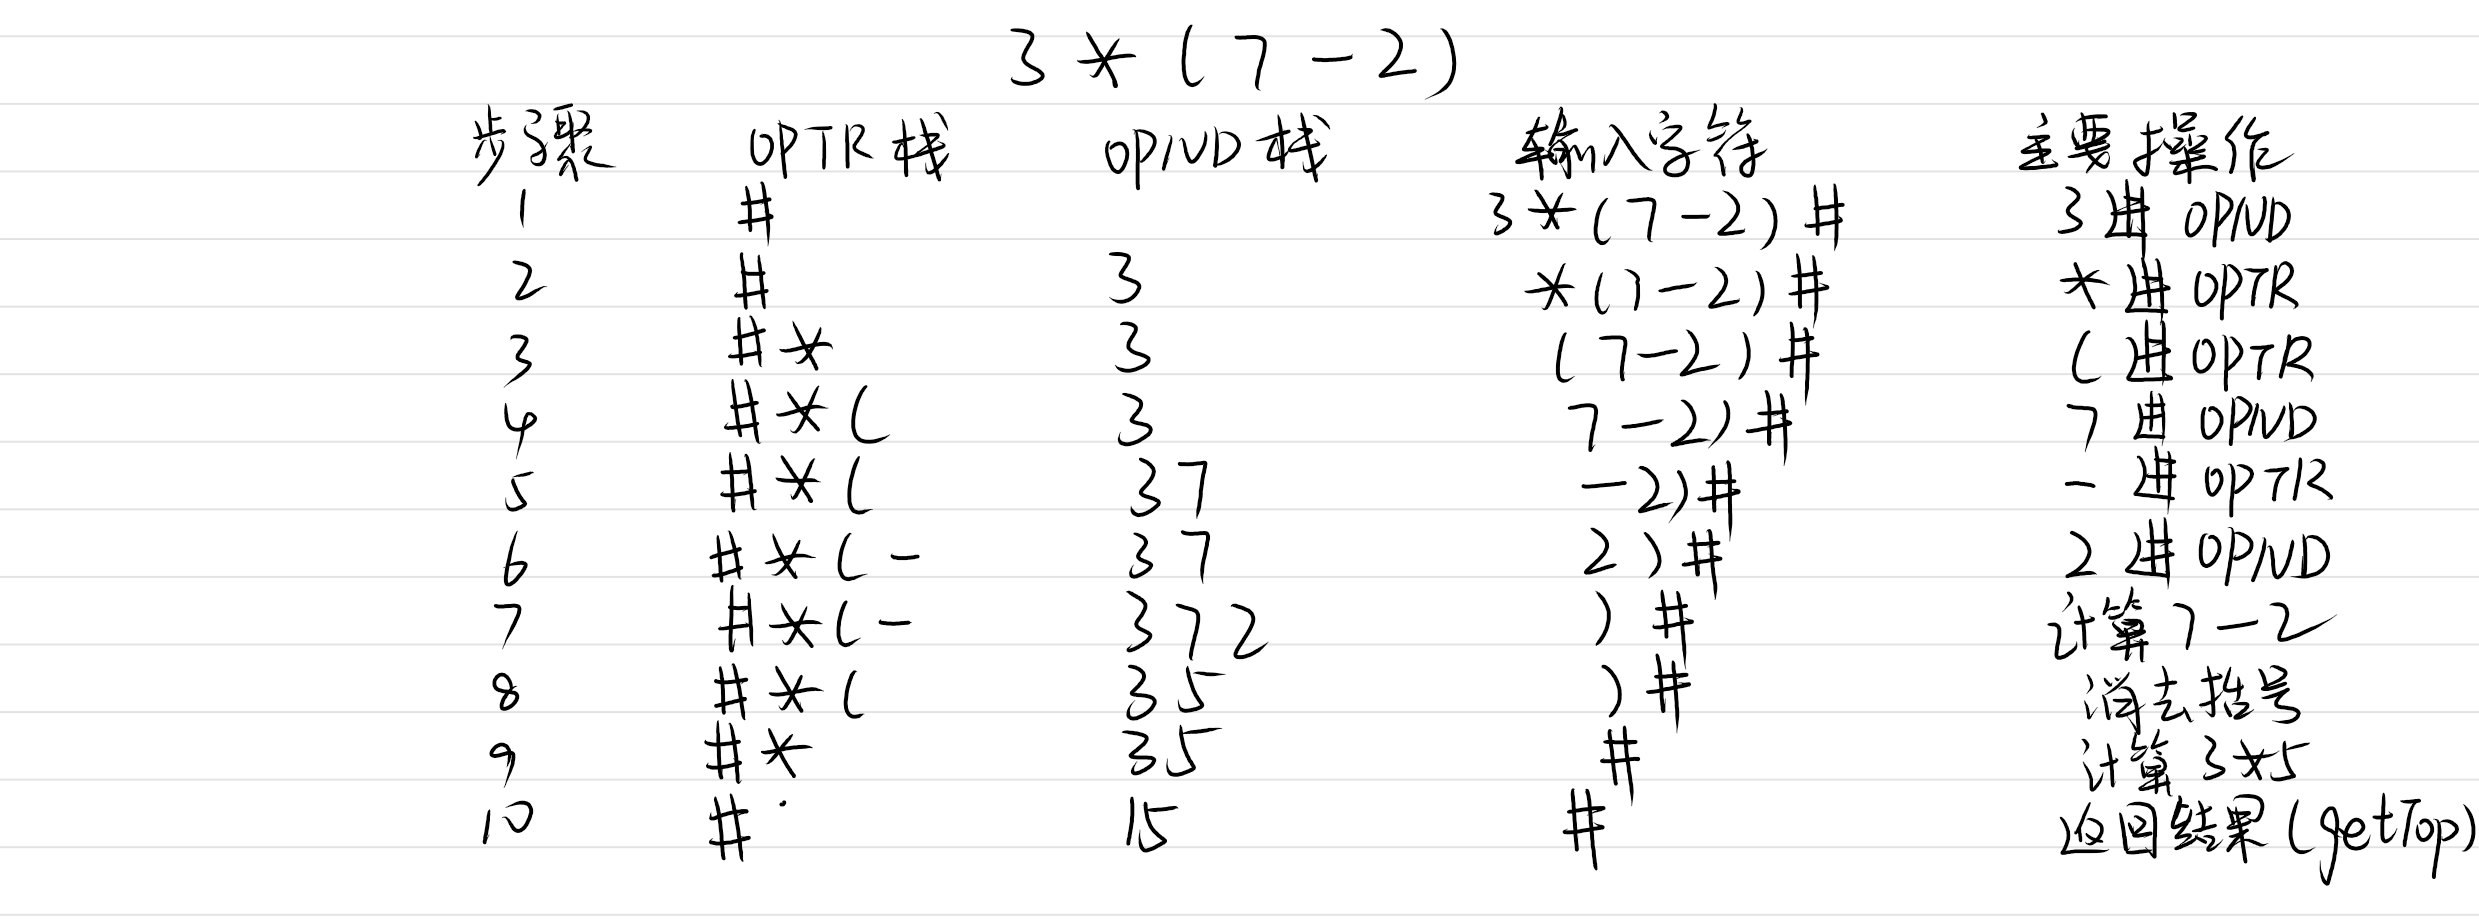 3*(7-2)
步骤 OPTR栈 OPND栈 输入字符 主要操作
1 # 3*(7-2)# 3进OPND
2 # 3 *(7-2)# *进OPTR
3 #* 3 (7-2)# (进OPTR
4 #*( 3 7-2)# 7进OPND
5 #*( 37 -2)# -进OPTR
6 #*(- 37 2)# 2进OPND
7 #*(- 372 )# 计算7-2
8 #*( 35 )# 消去括号
9 #* 35 # 计算3*5
10 # 15 # 返回结果(getTop)